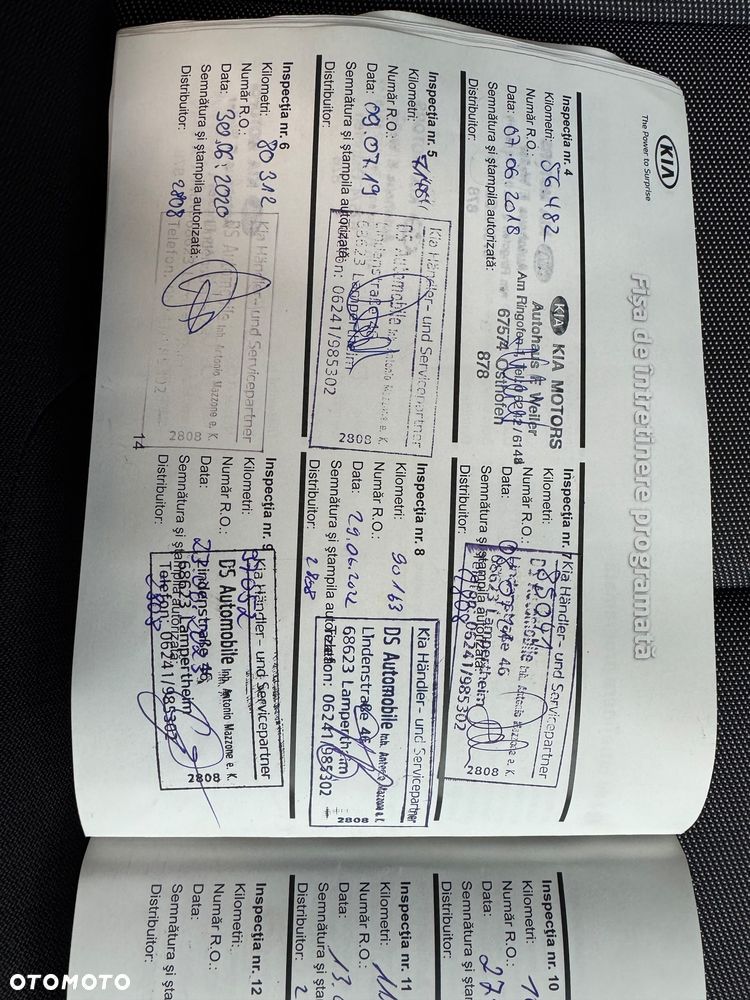 KIA
The Power to Surprise
Fișa de întreținere programată
Inspecția nr. 4
Kilometri: 56.482
Număr R.O.:
Data: 07.06.2018
Semnătura și ștampila autorizată:
Distribuitor:
KIA KIA MOTORS
Autohaus F. Weiler
Am Ringofen
67574 Osthofen
878
Inspecția nr. 5
Kilometri:
Număr R.O.:
Data: 09.07.19
Semnătura și ștampila autorizată:
Distribuitor:
Kia Händler- und Servicepartner
DS Automobile Inh. Antonio Mazzone e. K.
Lindenstraße 46
68623 Lampertheim
Telefon: 06241/985302
2808
Inspecția nr. 6
Kilometri: 80312
Număr R.O.:
Data: 30.06.2020
Semnătura și ștampila autorizată:
Distribuitor: 2808
Kia Händler- und Servicepartner
DS Automobile Inh. Antonio Mazzone e. K.
Telefon:
2808
14
Inspecția nr. 7
Kilometri:
Număr R.O.:
Data:
Semnătura și ștampila autorizată:
Distribuitor: 2808
Kia Händler- und Servicepartner
DS Automobile Inh. Antonio Mazzone e. K.
Lindenstraße 46
68623 Lampertheim
Telefon: 06241/985302
2808
Inspecția nr. 8
Kilometri: 90163
Număr R.O.:
Data: 29.06.2022
Semnătura și ștampila autorizată:
Distribuitor: 2808
Kia Händler- und Servicepartner
DS Automobile Inh. Antonio Mazzone e. K.
Lindenstraße 46
68623 Lampertheim
Telefon: 06241/985302
2808
Inspecția nr. 9
Kilometri:
Număr R.O.:
Data:
Semnătura și ștampila autorizată:
Distribuitor: 2808
Kia Händler- und Servicepartner
DS Automobile Inh. Antonio Mazzone e. K.
Lindenstraße 46
68623 Lampertheim
Telefon: 06241/985302
2808
Inspecția nr. 10
Kilometri:
Număr R.O.:
Data: 27
Semnătura și
Distribuitor:
Inspecția nr. 11
Kilometri: 11
Număr R.O.:
Data: 13.
Semnătura și șta
Distribuitor: 2
Inspecția nr. 12
Kilometri:
Număr R.O.:
Data:
Semnătura și șta
Distribuitor:
OTOMOTO